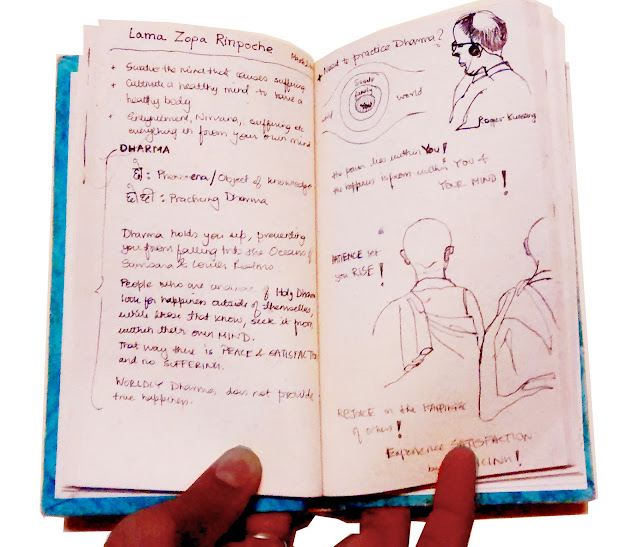 Lama Zopa Rinpoche
+ Subdue the mind that causes suffering
+ Cultivate a healthy mind to have a
healthy body
+ Enlightenment, Nirvana, suffering etc
everything is from your own mind
DHARMA
: Phenomena/Object of knowledge
: Practicing Dharma
Dharma holds you up, preventing
you from falling into the Oceans of
Samsara & Lower Realms.
People who are unaware of Holy Dharma
look for happiness outside of themselves,
while those that know, seek it from
within their own MIND.
That way there is PEACE & SATISFACTION
and no SUFFERING.
WORLDLY Dharma, does not provide
true happiness.
+ Need to practice Dharma?
family
You
world
Roger Kunsang
the power lies within YOU!
the happiness is from within YOU &
YOUR MIND!
PATIENCE let
you RISE!
REJOICE in the HAPPINESS
of others!
Experience SATISFACTION